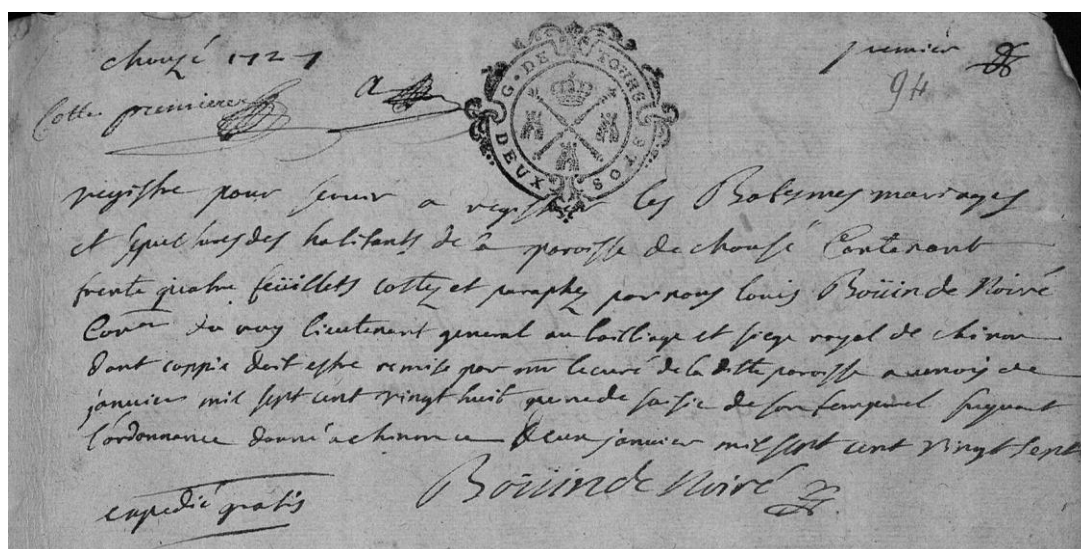 chouzé 1727
premier
94
Cotte premiere
a
G · DE · TOURS
DEUX SOLS
registre pour servir a registrer les Batesmes mariages
et sepultures des habitants de la paroisse de chousé Contenant
trente quatre feüillets cottez et paraphez par nous Louis Boüin de Noiré
Coner du roy lieutenant general au bailliage et siege royal de chinon
dont coppie doit estre remise par mr le curé de la ditte paroisse au mois de
janvier mil sept cent vingt huit peine de saisie de son temporel suivant
l'ordonnance donné a chinon ce deux janvier mil sept cent vingt sept
Boüin de Noiré
expedié gratis